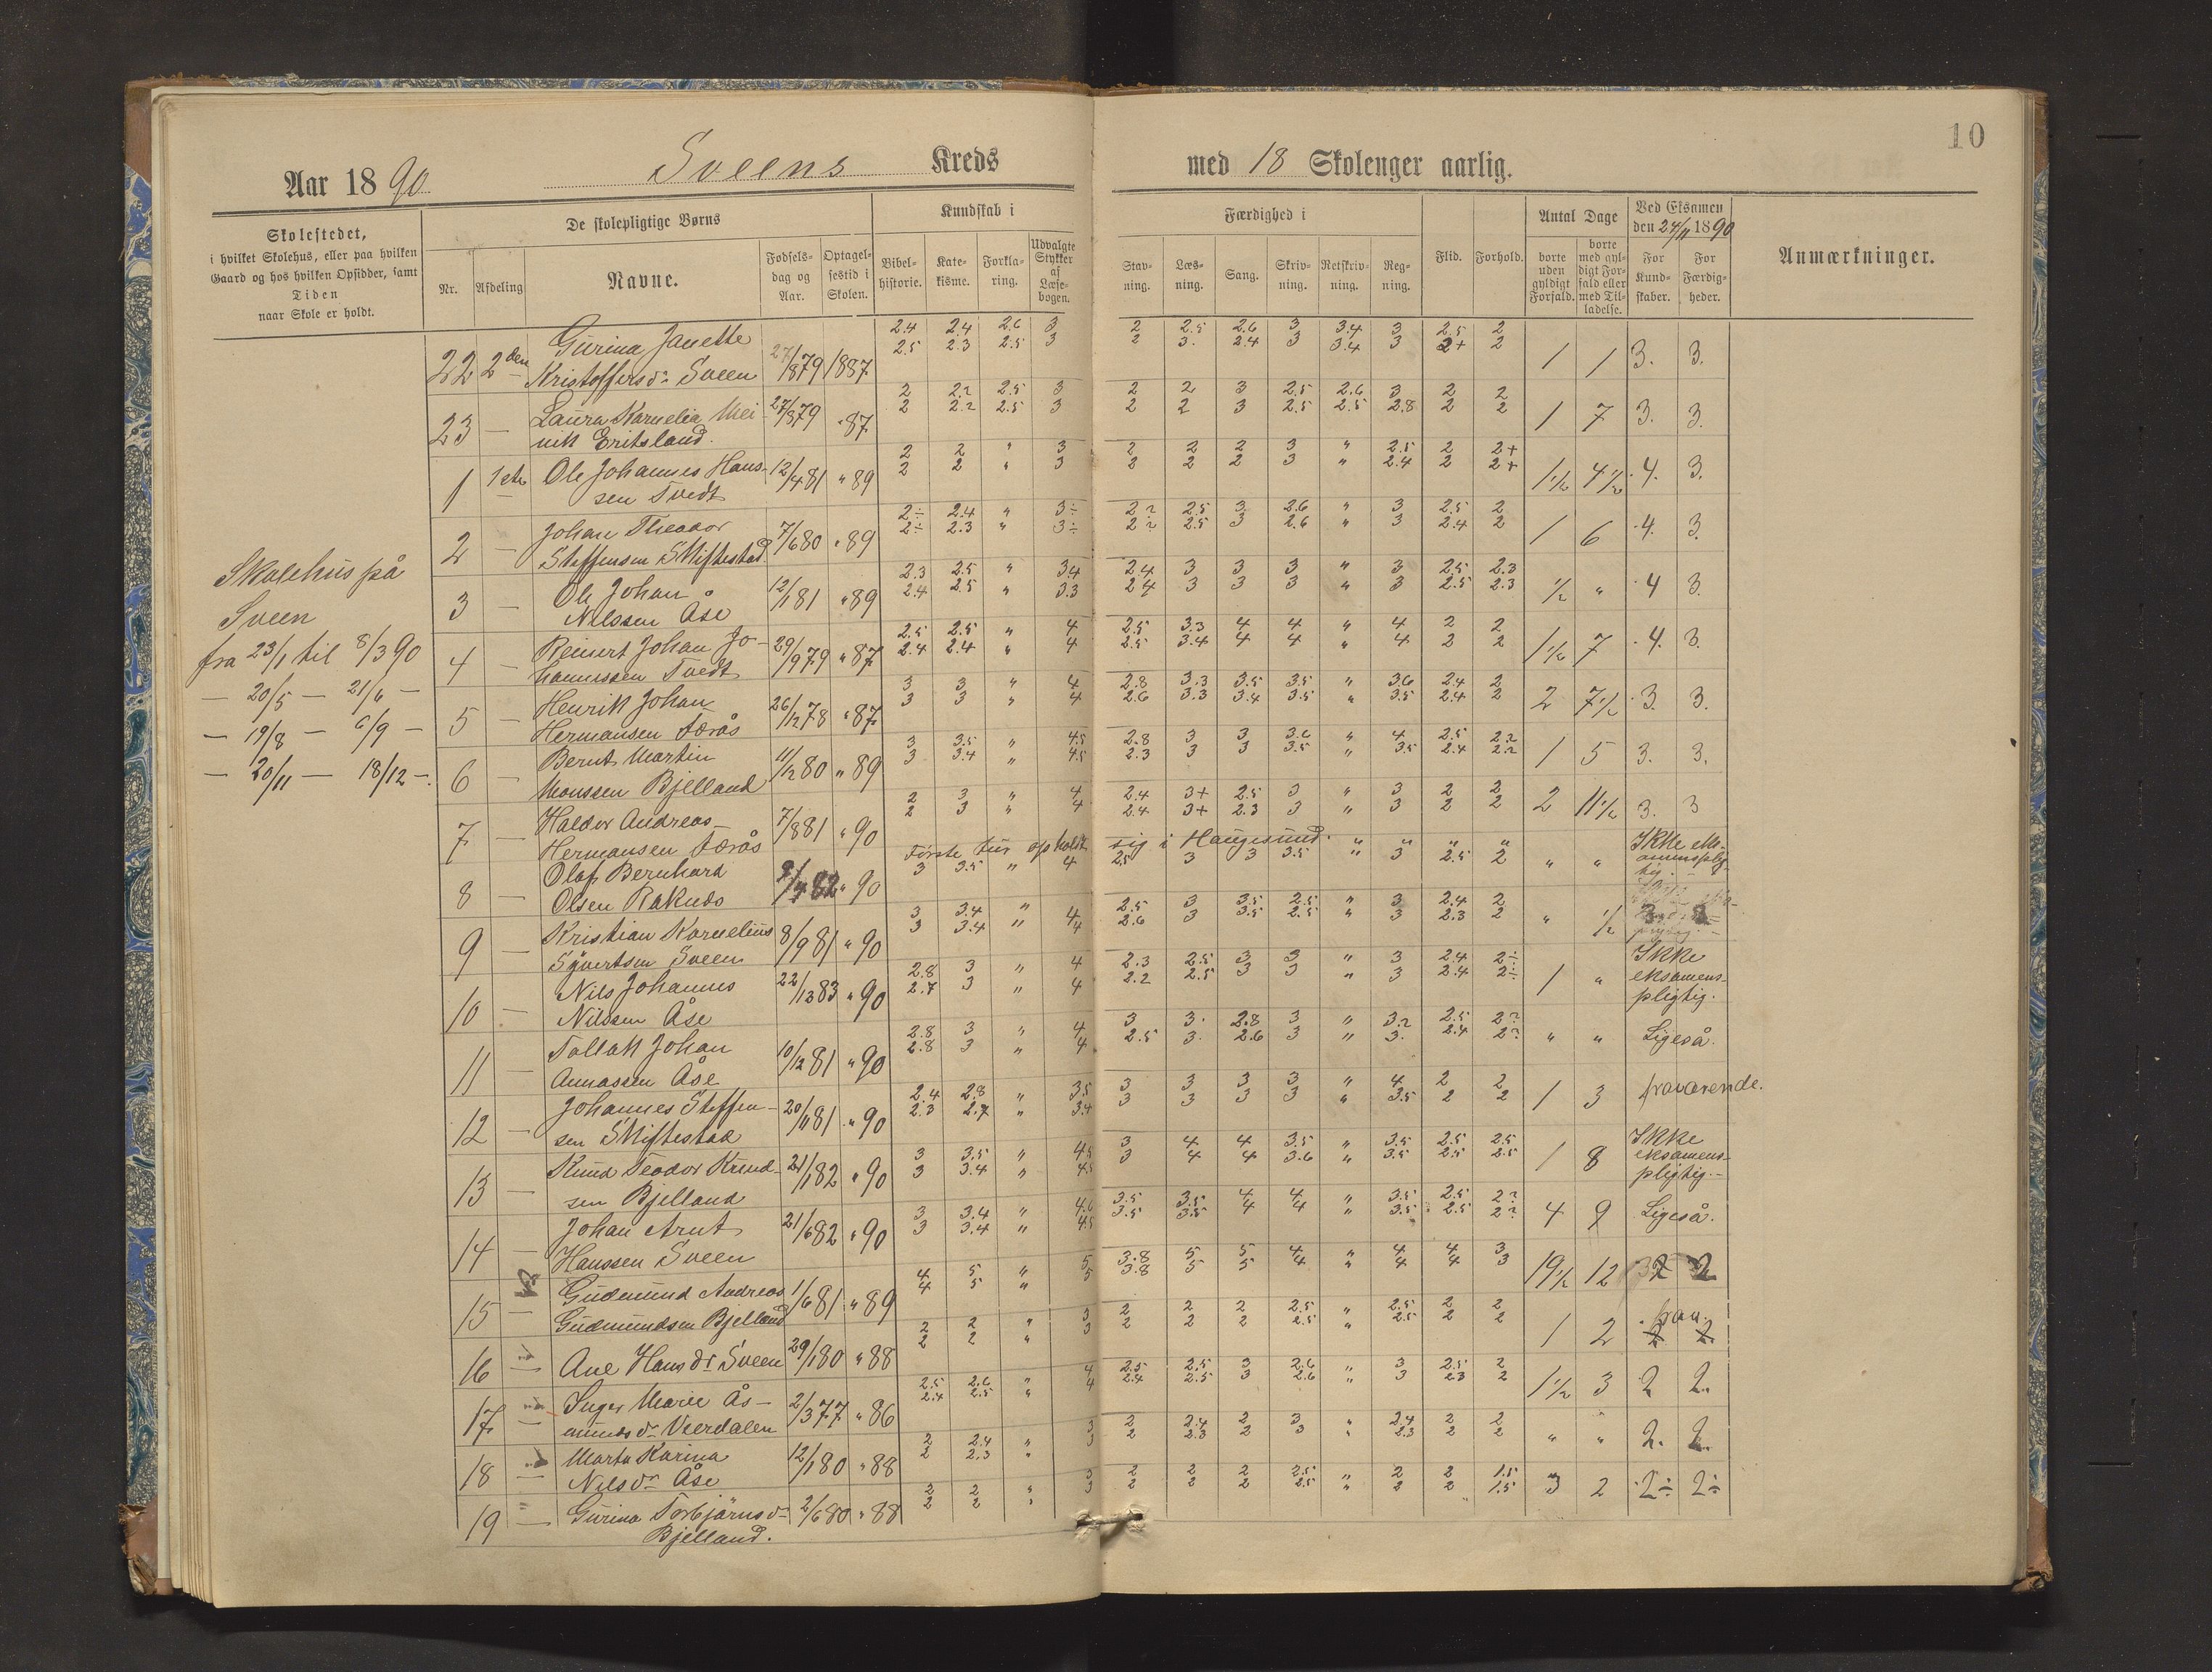 10
Aar 1890
Sveens Kreds
med 18 Skolenger aarlig.
Skolestedet,
i hvilket Skolehus, eller paa hvilken
Gaard og hos hvilken Opsidder, samt
Tiden
naar Skole er holdt.
De skolepligtige Børns
Nr.
Afdeling
Navne.
Fødsels-
dag og
Aar.
Optagel-
sestid i
Skolen.
Kundskab i
Bibel-
historie.
Kate-
kisme.
Forkla-
ring.
Udvalgte
Stykker
af
Læse-
bogen.
Færdighed i
Stav-
ning.
Læs-
ning.
Sang.
Skriv-
ning.
Retskriv-
ning.
Reg-
ning.
Flid.
Forhold.
Antal Dage
borte
uden
gyldigt
Forfald.
borte
med gyl-
digt For-
fald eller
med Til-
ladelse.
Ved Eksamen
den 24/11 1890
For
Kund-
skaber.
For
Færdig-
heder.
Anmærkninger.
Skolehus på
Sveen
fra 23/1 til 8/3 90
— 20/5 — 21/6 —
— 19/8 — 6/9 —
— 20/11 — 18/12 —
22 2den Gurina Janette 27/8 79 1887 2.4 2.4 2.6 3 2 2.5 2.6 3 3.4 3 2.5 2
Kristoffersdr Sveen 2.5 2.3 2.5 3 2 3. 2.4 3 3.4 3 2+ 2 1 1 3. 3.
23 — Laura Kornelia 27/8 79 " 87 2 2.2 2.5 3 2 2 3 2.5 2.6 3 2 2
2 2.2 2.5 3 2 2 3 2.5 2.5 2.8 2 2 1 7 3. 3.
1 1ste Ole Johannes Hans- 12/4 81 " 89 2 2 " 3 2 2 2 3 " 2.5 2 2+
sen Tvedt 2 2 " 3 2 2 2 3 " 2.4 2 2+ 1 1/2 4 1/2 4. 3.
2 — Johan Theodor 7/6 80 " 89 2÷ 2.4 " 3÷ 2.5 3 2.6 " 3 2.5 2
Steffensen Skiftestad 2÷ 2.3 " 3÷ 2.5 3 2.6 " 3 2.4 2 1 6 4. 3.
3 — Ole Johan 12/1 81 " 89 2.3 2.5 " 3.4 2.4 3 3 3 " 3 2.5 2.3
Nilssen Åse 2.4 2.5 " 3.3 2.4 3 3 3 " 3 2.5 2.3 1/2 " 4 3.
4 — Reinert Johan Jo- 29/9 79 " 87 2.5 2.5 " 4 2.5 3.3 4 4 " 4 2 2
hannessen Tvedt 2.4 2.4 " 4 2.5 3.4 4 4 " 4 2 2 1 1/2 7 4. 3.
5 — Henrik Johan 26/12 78 " 87 3 3 " 4 2.8 3.3 3.5 3.5 " 3.6 2.4 2
Hermansen 3 3 " 4 2.6 3.3 3.4 3.5 " 3.5 2.4 2 2 7 1/2 3. 3.
6 — Bernt Martin 11/12 80 " 89 3 3.5 " 4.5 2.8 3 3 3.6 " 4 2.5 2.2
Monssen Bjelland 3 3.4 " 4.5 2.3 3 3 3.5 " 3.5 2.4 2.2 1 5 3. 3.
7 — Haldor Andreas 7/8 81 " 90 2 3 " 4 2.4 3+ 2.5 3 " 3 2 2
Hermansen 2 3 " 4 2.4 3+ 2.3 3 " 3 2 2 2 11 1/2 3. 3
8 — Olaf Bernhard 82 " 90 Første tur opholdt sig i Haugesund. " " " "
Olsen 3 3.5 " 4 2.5 3 3 3.5 " 3 2.5 2 " " Ikke eks-
amensplig-
tig.
9 — Kristian Kornelius 8/9 81 " 90 3 3.4 " 4 2.5 3 3.5 2.5 " 3 2.4 2
Sjvertsen Sveen 3 3.4 " 4 2.6 3 3.5 2.5 " 3 2.3 2 " 1/2 3
10 — Nils Johannes 22/12 83 " 90 2.8 3 " 4 2.3 2.5 3 3 " 3 2.4 2÷
Nilssen Åse 2.7 3 " 4 2.2 2.5 3 3 " 3 2.4 2÷ 1 " Ikke
eksamens-
pligtig.
11 — Tollak Johan 10/12 81 " 90 2.8 3 " 4 3 3. 2.8 3 " 3.2 2.5 2?
Annassen Åse 2.8 3 " 4 2.5 3. 2.6 3 " 3. 2.4 2? " " Ligeså.
12 — Johannes Steffen- 20/11 81 " 90 2.4 2.8 " 3.5 3 3 3 3 " 4 2 2
sen Skiftestad 2.3 2.7 " 3.4 3 3 3 3 " 3.5 2 2 1 3 fraværende.
13 — Knud Teodor Knud- 21/1 82 " 90 3 3.5 " 4.5 3 4 4 3.5 " 3.5 2.5 2.5
sen Bjelland 3 3.4 " 4.5 3 4 4 3.6 " 3.5 2.5 2.5 1 8 Ikke
eksamens-
pligtig.
14 — Johan Arnt 21/6 82 " 90 3 3.4 " 4.6 3.5 3.5 4 4 " 3.5 2.5 2?
Hanssen Sveen 3 3.4 " 4.5 3.5 3.5 4 4 " 3.5 2.5 2? 4 9 Ligeså.
15 — Gudmund Andreas 1/6 81 " 89 4 5 " 5 3.8 5 5 4 " 4 4 3
Gudmundsen Bjelland 4 5 " 5 3.8 5 5 4 " 4 4 3 19 1/2 12 2 2
16 — Ane Hansdr Sveen 29/1 80 " 88 2 2 " 3 2 2 2 2.5 " 2.5 2 2
2 2 " 3 2 2 2 2.5 " 2.5 2 2 1 2 frav.
2 2
17 — Inger Marie Ås- 2/3 77 " 86 2.5 2.6 " 4 2.5 2.5 3 2.6 " 3 2.5 2
mundsdr Veerdalen 2.4 2.5 " 4 2.4 2.5 3 2.6 " 3 2.3 2 1 1/2 3 2 2.
18 — Marta Karina 12/1 80 " 88 2 2.4 " 3 2 2.4 2 3 " 2.4 2 2
Nilsdr Åse 2 2.3 " 3 2 2.3 2 3 " 2.3 2 2 " " 2. 2.
19 — Gurina Torbjørnsd- 2/6 80 " 88 2 2 " 3 2 2 2 2.5 " 2 2 1.5
Bjelland. 2 2 " 3 2 2 2 2.5 " 2 2 1.5 3 2 2÷ 2÷